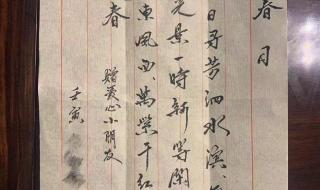 春日
日寻芳泗水滨
光景一時新等閒
東風面萬紫千紅
春
赠爱心小朋友
壬寅